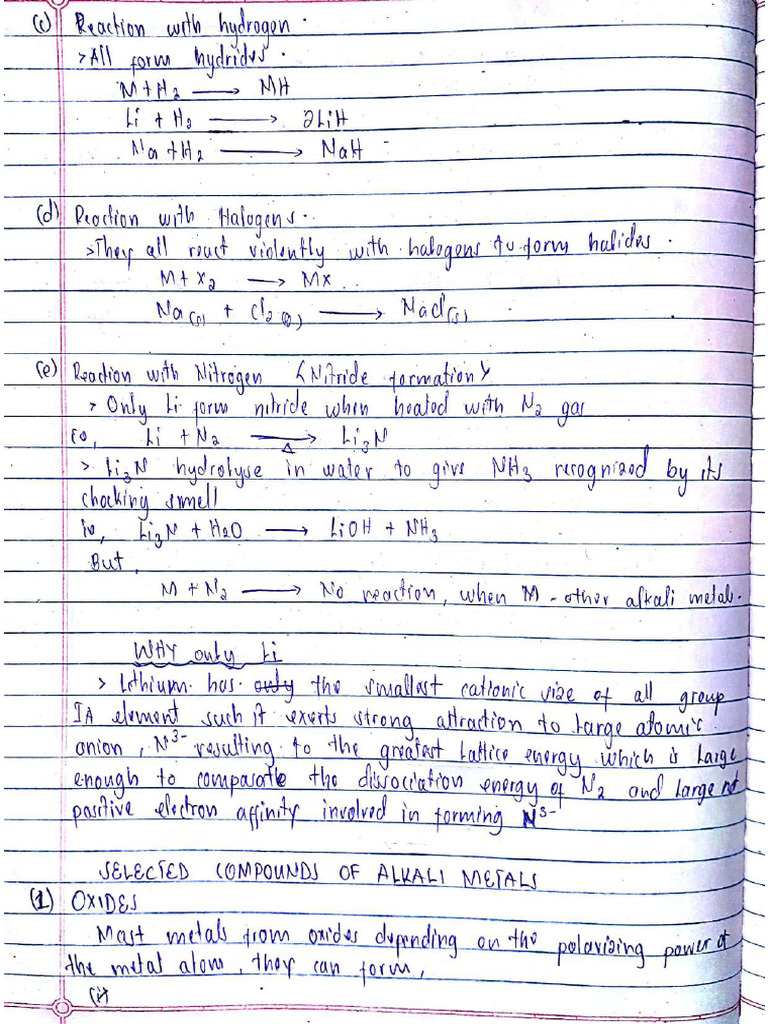 (c) Reaction with hydrogen.
> All form hydrides.
M + H₂ ⟶ MH
Li + H₂ ⟶ 2LiH
Na + H₂ ⟶ NaH
(d) Reaction with Halogens.
> They all react violently with halogens to form halides.
M + X₂ ⟶ MX
Na(s) + Cl₂(g) ⟶ NaCl(s)
(e) Reaction with Nitrogen <Nitride formation>
> Only Li form nitride when heated with N₂ gas
ie, Li + N₂ ⟶ Li₃N
Δ
> Li₃N hydrolyse in water to give NH₃ recognized by its
chocking smell
ie, Li₃N + H₂O ⟶ LiOH + NH₃
But,
M + N₂ ⟶ No reaction, when M - other alkali metals.
WHY only Li
> Lithium has only the smallest cationic size of all group
IA element such it exerts strong attraction to large atomic
anion, N³⁻ resulting to the greatest Lattice energy which is large
enough to compasate the dissociation energy of N₂ and large net
positive electron affinity involved in forming N³⁻
SELECTED COMPOUNDS OF ALKALI METALS
(1) OXIDES
Most metals from oxides depending on the polarising power of
the metal atom, they can form,
(i)